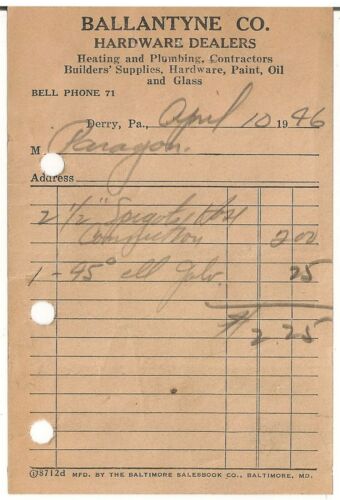 BALLANTYNE CO.
HARDWARE DEALERS
Heating and Plumbing, Contractors
Builders' Supplies, Hardware, Paint, Oil
and Glass
BELL PHONE 71
Derry, Pa., April 10 1946
M Paragon.
Address
2 1/2" 
Connection 2 00
1 - 45° ell Galv. 25
$ 2.25
8712d MFD. BY THE BALTIMORE SALESBOOK CO., BALTIMORE, MD.